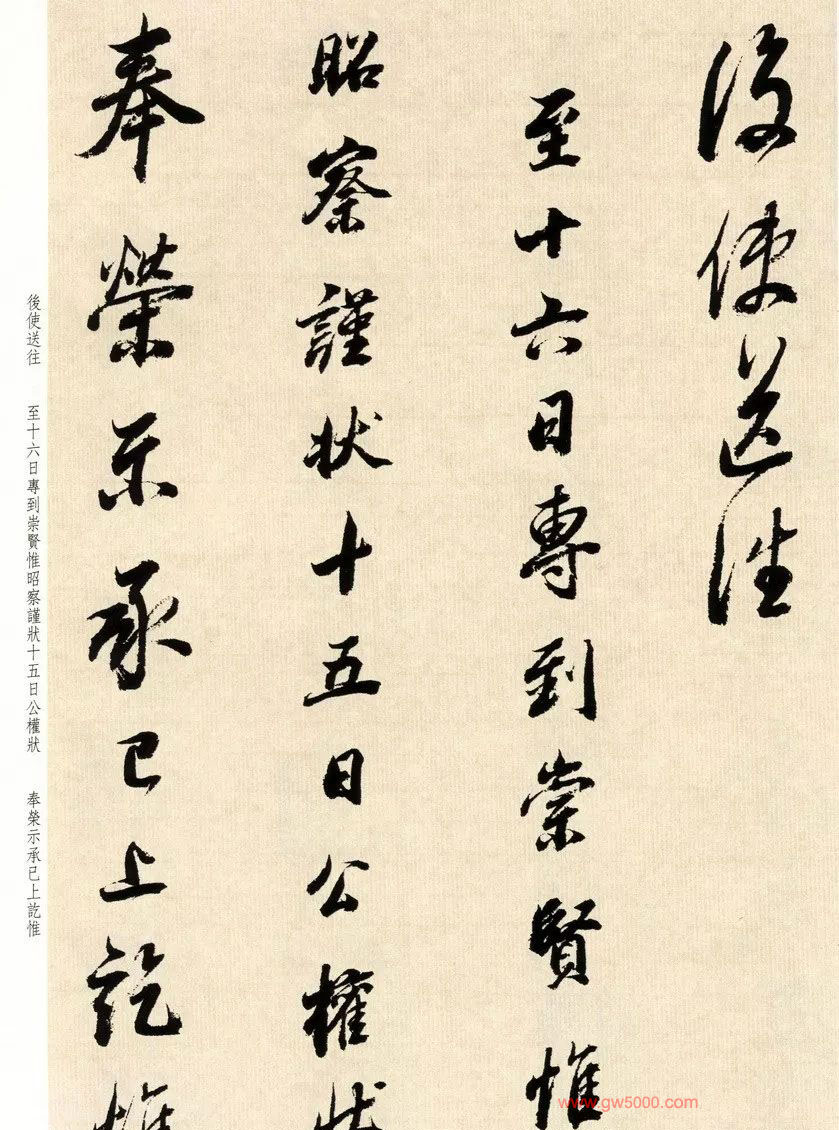 後使送往
至十六日專到崇賢惟
昭察謹狀十五日公權狀
奉榮示承已上訖惟
後使送往 至十六日專到崇賢惟昭察謹狀十五日公權狀 奉榮示承已上訖惟
www.gw5000.com